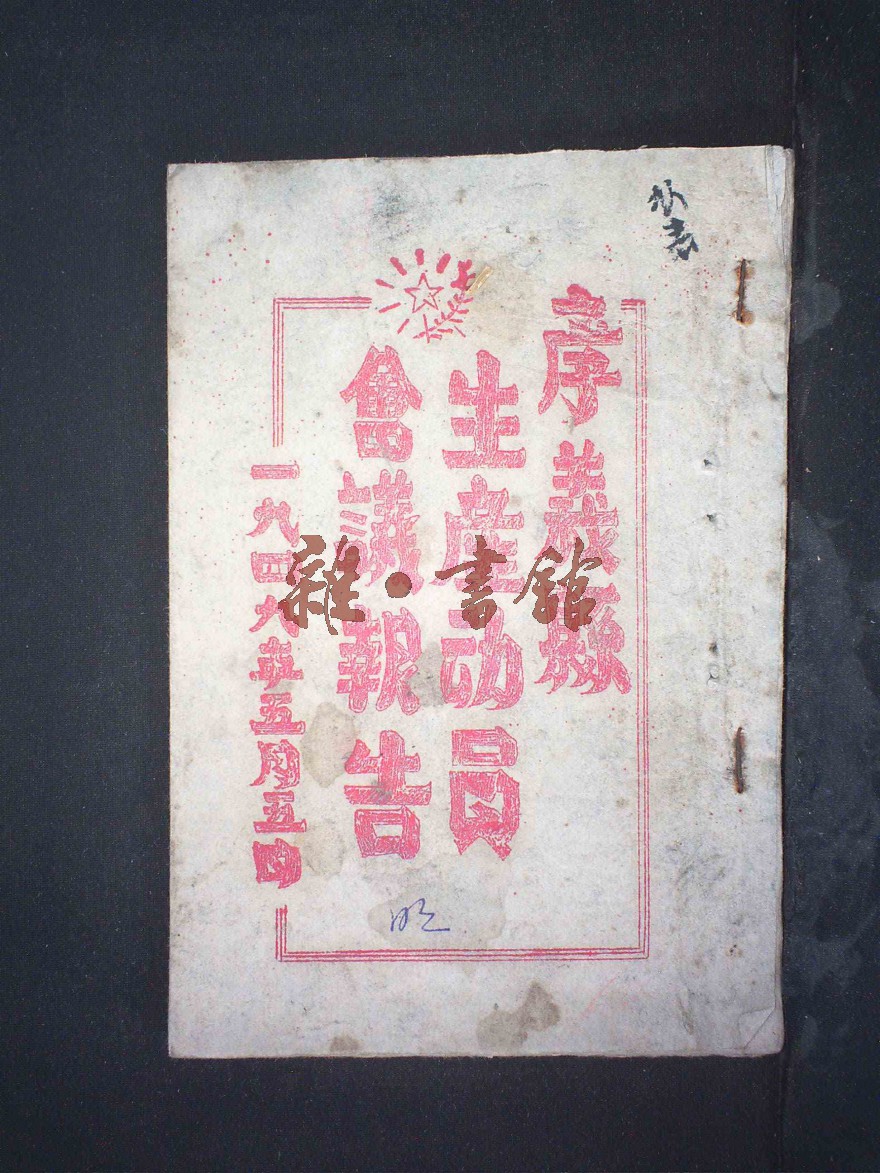 孝義縣
生産动員
會議報告
一九四九年五月五日
雜·書館